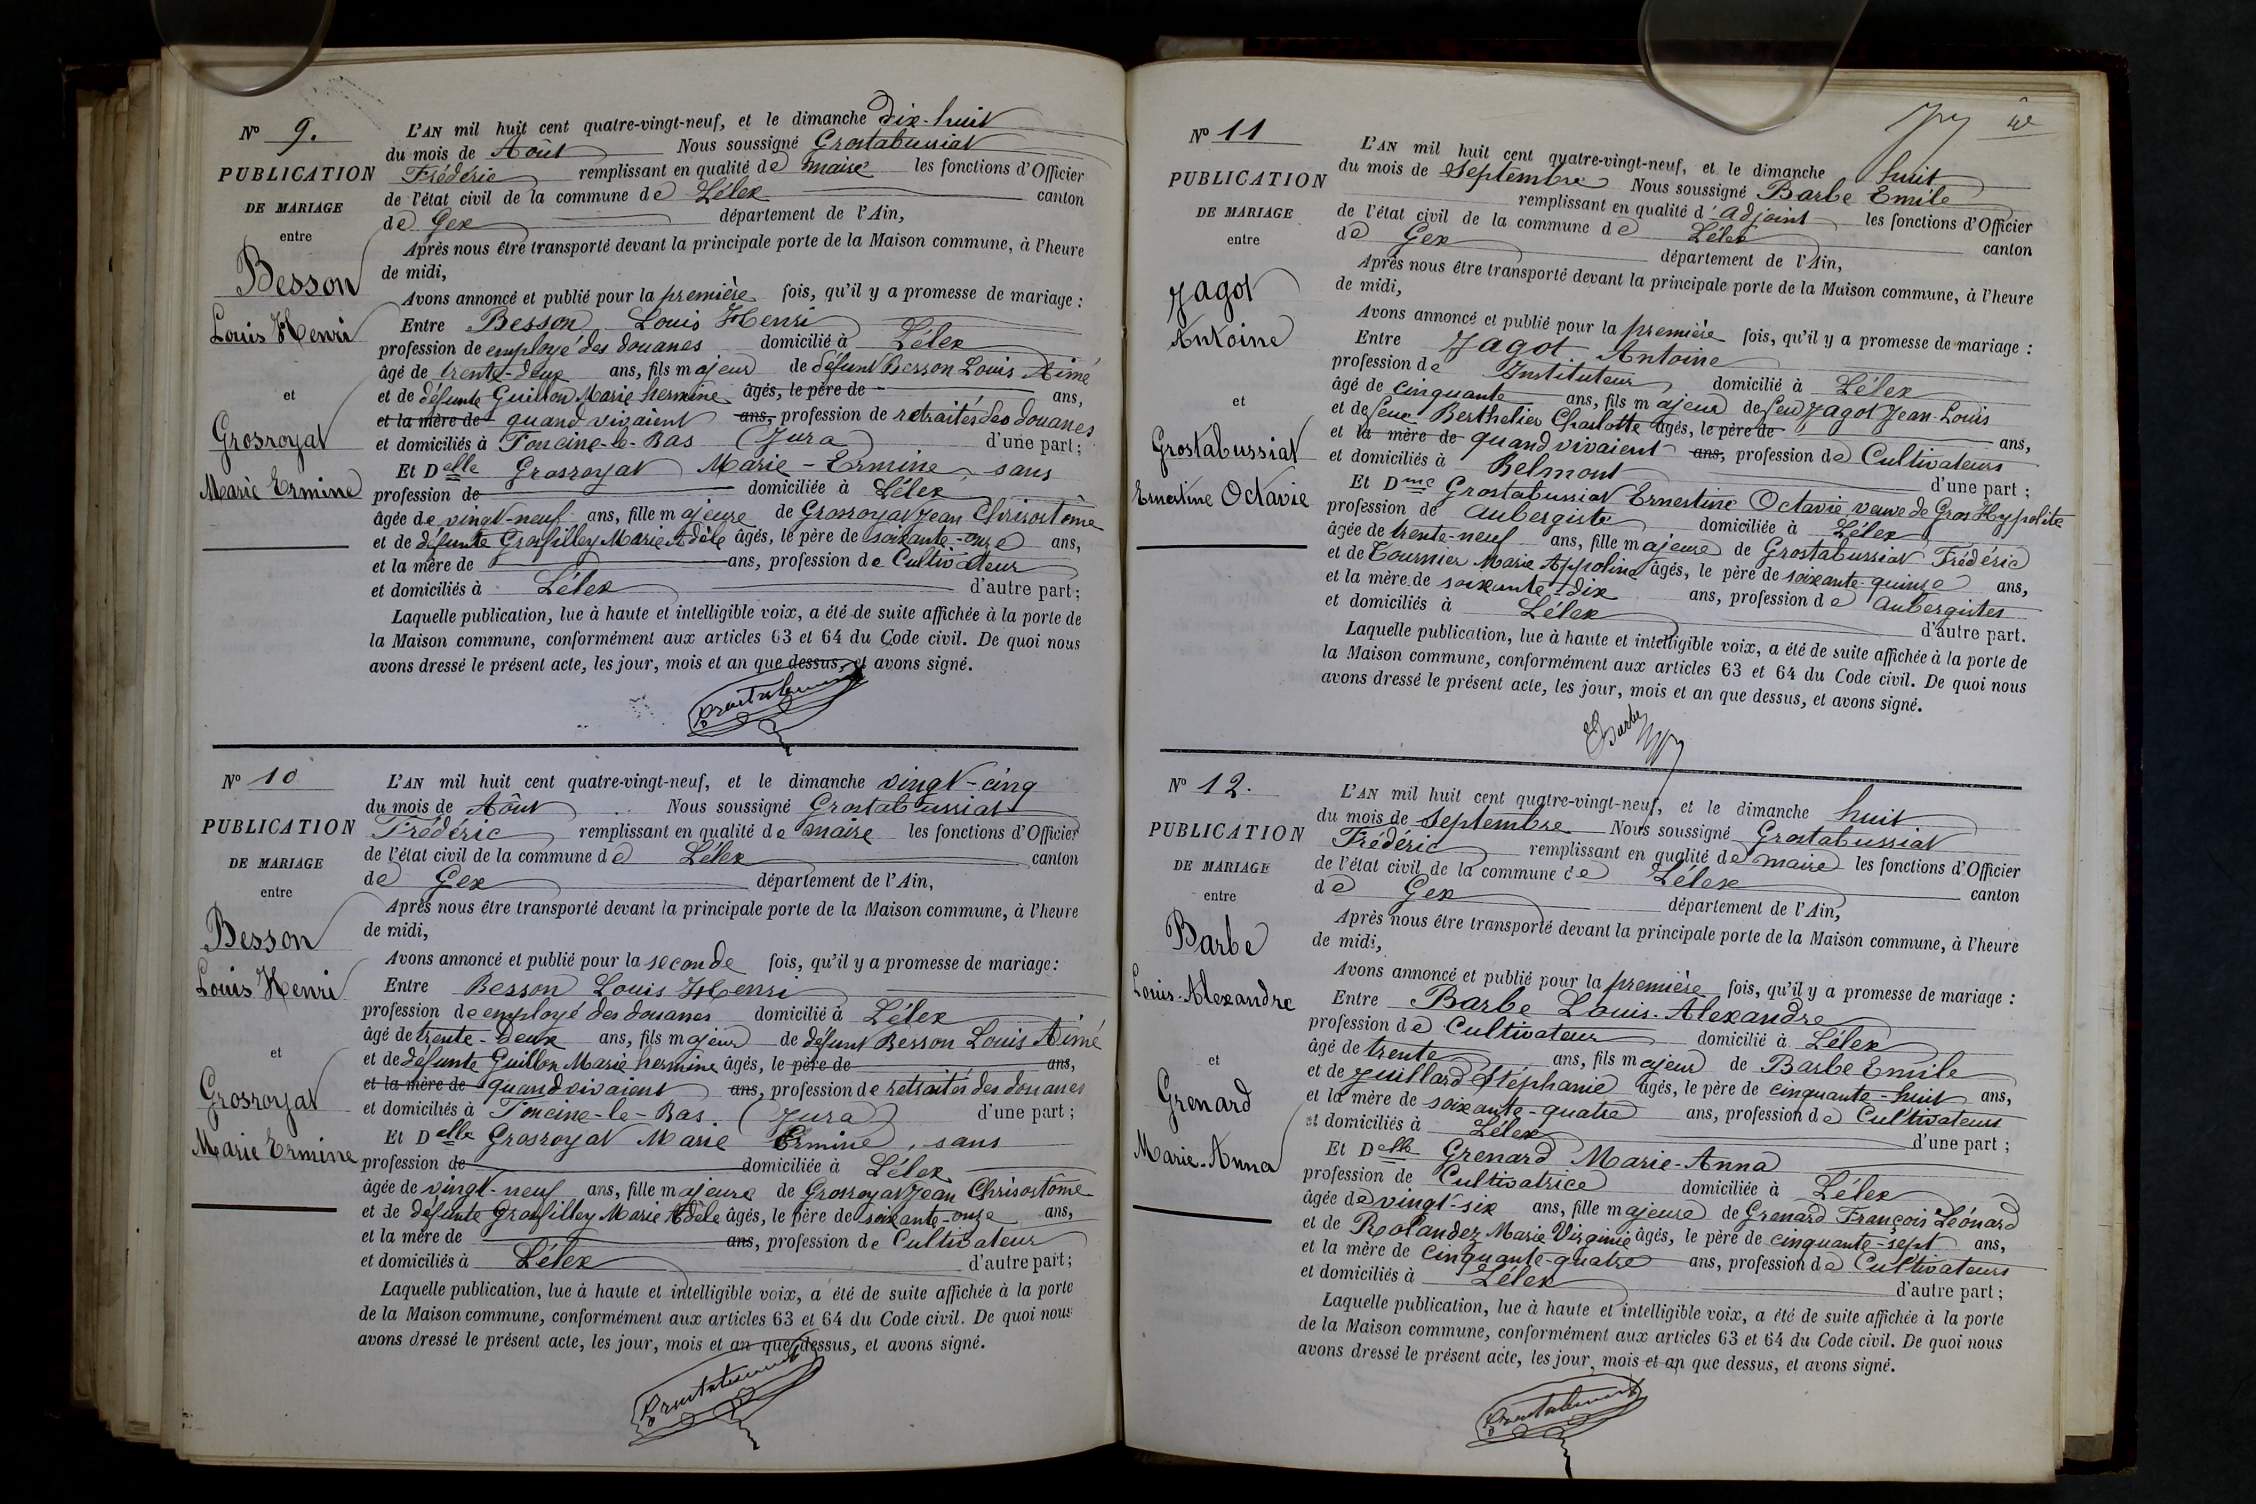 N° 9.
PUBLICATION
DE MARIAGE
entre
Besson
Louis Henri
et
Grosroyat
Marie Ermine
L'AN mil huit cent quatre-vingt-neuf, et le dimanche dix-huit
du mois de Août Nous soussigné Grostabussiat
Frédéric remplissant en qualité de maire les fonctions d'Officier
de l'état civil de la commune de Lélex canton
de Gex département de l'Ain,
Après nous être transporté devant la principale porte de la Maison commune, à l'heure
de midi,
Avons annoncé et publié pour la première fois, qu'il y a promesse de mariage :
Entre Besson Louis Henri
profession de employé des douanes domicilié à Lélex
âgé de trente-deux ans, fils majeur de défunt Besson Louis Aimé
et de défunte Guillon Marie hermine âgés, le père de ans,
et la mère de quand vivaient ans, profession de retraités des douanes
et domiciliés à Foncine-le-Bas (Jura) d'une part ;
Et Delle Grosroyat Marie-Ermine, sans
profession de domiciliée à Lélex
âgée de vingt-neuf ans, fille majeure de Grosroyat Jean Chrisostôme
et de défunte Grosfilley Marie Adèle âgés, le père de soixante-onze ans,
et la mère de ans, profession de Cultivateur
et domiciliés à Lélex d'autre part ;
Laquelle publication, lue à haute et intelligible voix, a été de suite affichée à la porte de
la Maison commune, conformément aux articles 63 et 64 du Code civil. De quoi nous
avons dressé le présent acte, les jour, mois et an que dessus, et avons signé.
Grostabussiat
N° 10
PUBLICATION
DE MARIAGE
entre
Besson
Louis Henri
et
Grosroyat
Marie Ermine
L'AN mil huit cent quatre-vingt-neuf, et le dimanche vingt-cinq
du mois de Août Nous soussigné Grostabussiat
Frédéric remplissant en qualité de maire les fonctions d'Officier
de l'état civil de la commune de Lélex canton
de Gex département de l'Ain,
Après nous être transporté devant la principale porte de la Maison commune, à l'heure
de midi,
Avons annoncé et publié pour la seconde fois, qu'il y a promesse de mariage :
Entre Besson Louis Henri
profession de employé des douanes domicilié à Lélex
âgé de trente-deux ans, fils majeur de défunt Besson Louis Aimé
et de défunte Guillon Marie hermine âgés, le père de ans,
et la mère de quand vivaient ans, profession de retraités des douanes
et domiciliés à Foncine-le-Bas. (Jura) d'une part ;
Et Delle Grosroyat Marie Ermine, sans
profession de domiciliée à Lélex
âgée de vingt-neuf ans, fille majeure de Grosroyat Jean Chrisostôme
et de défunte Grosfilley Marie Adèle âgés, le père de soixante-onze ans,
et la mère de ans, profession de Cultivateur
et domiciliés à Lélex d'autre part ;
Laquelle publication, lue à haute et intelligible voix, a été de suite affichée à la porte
de la Maison commune, conformément aux articles 63 et 64 du Code civil. De quoi nous
avons dressé le présent acte, les jour, mois et an que dessus, et avons signé.
Grostabussiat
N° 11
PUBLICATION
DE MARIAGE
entre
Jagot
Antoine
et
Grostabussiat
Ernestine Octavie
L'AN mil huit cent quatre-vingt-neuf, et le dimanche huit
du mois de Septembre Nous soussigné Barbe Emile
remplissant en qualité d'adjoint les fonctions d'Officier
de l'état civil de la commune de Lélex canton
de Gex département de l'Ain,
Après nous être transporté devant la principale porte de la Maison commune, à l'heure
de midi,
Avons annoncé et publié pour la première fois, qu'il y a promesse de mariage :
Entre Jagot Antoine
profession de Instituteur domicilié à Lélex
âgé de cinquante ans, fils majeur de feu Jagot Jean-Louis
et de feue Berthelier Charlotte âgés, le père de ans,
et la mère de quand vivaient ans, profession de Cultivateurs
et domiciliés à Belmont d'une part ;
Et Dme Grostabussiat Ernestine Octavie veuve de Gros Hypolite
profession de aubergiste domiciliée à Lélex
âgée de trente-neuf ans, fille majeure de Grostabussiat Frédéric
et de Tournier Marie Appoline âgés, le père de soixante-quinze ans,
et la mère de soixante-dix ans, profession de aubergistes
et domiciliés à Lélex d'autre part.
Laquelle publication, lue à haute et intelligible voix, a été de suite affichée à la porte de
la Maison commune, conformément aux articles 63 et 64 du Code civil. De quoi nous
avons dressé le présent acte, les jour, mois et an que dessus, et avons signé.
Barbe
N° 12.
PUBLICATION
DE MARIAGE
entre
Barbe
Louis-Alexandre
et
Grenard
Marie-Anna
L'AN mil huit cent quatre-vingt-neuf, et le dimanche huit
du mois de Septembre Nous soussigné Grostabussiat
Frédéric remplissant en qualité de maire les fonctions d'Officier
de l'état civil de la commune de Lélex canton
de Gex département de l'Ain,
Après nous être transporté devant la principale porte de la Maison commune, à l'heure
de midi,
Avons annoncé et publié pour la première fois, qu'il y a promesse de mariage :
Entre Barbe Louis-Alexandre
profession de Cultivateur domicilié à Lélex
âgé de trente ans, fils majeur de Barbe Emile
et de Juillard Stéphanie âgés, le père de cinquante-huit ans,
et la mère de soixante-quatre ans, profession de Cultivateurs
et domiciliés à Lélex d'une part ;
Et Delle Grenard Marie-Anna
profession de Cultivatrice domiciliée à Lélex
âgée de vingt-six ans, fille majeure de Grenard François Léonard
et de Rolandez Marie Virginie âgés, le père de cinquante-sept ans,
et la mère de cinquante-quatre ans, profession de Cultivateurs
et domiciliés à Lélex d'autre part ;
Laquelle publication, lue à haute et intelligible voix, a été de suite affichée à la porte
de la Maison commune, conformément aux articles 63 et 64 du Code civil. De quoi nous
avons dressé le présent acte, les jour, mois et an que dessus, et avons signé.
Grostabussiat